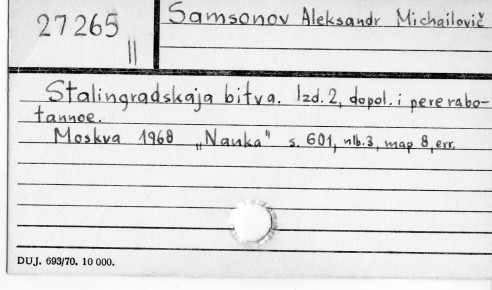 27265
II
Samsonov Aleksandr Michailovič
Stalingradskaja bitva. Izd. 2, dopol. i pererabo-
tannoe.
Moskva 1968 „Nauka" s. 601, nlb. 3, map 8, err.
DUJ. 693/70. 10 000.